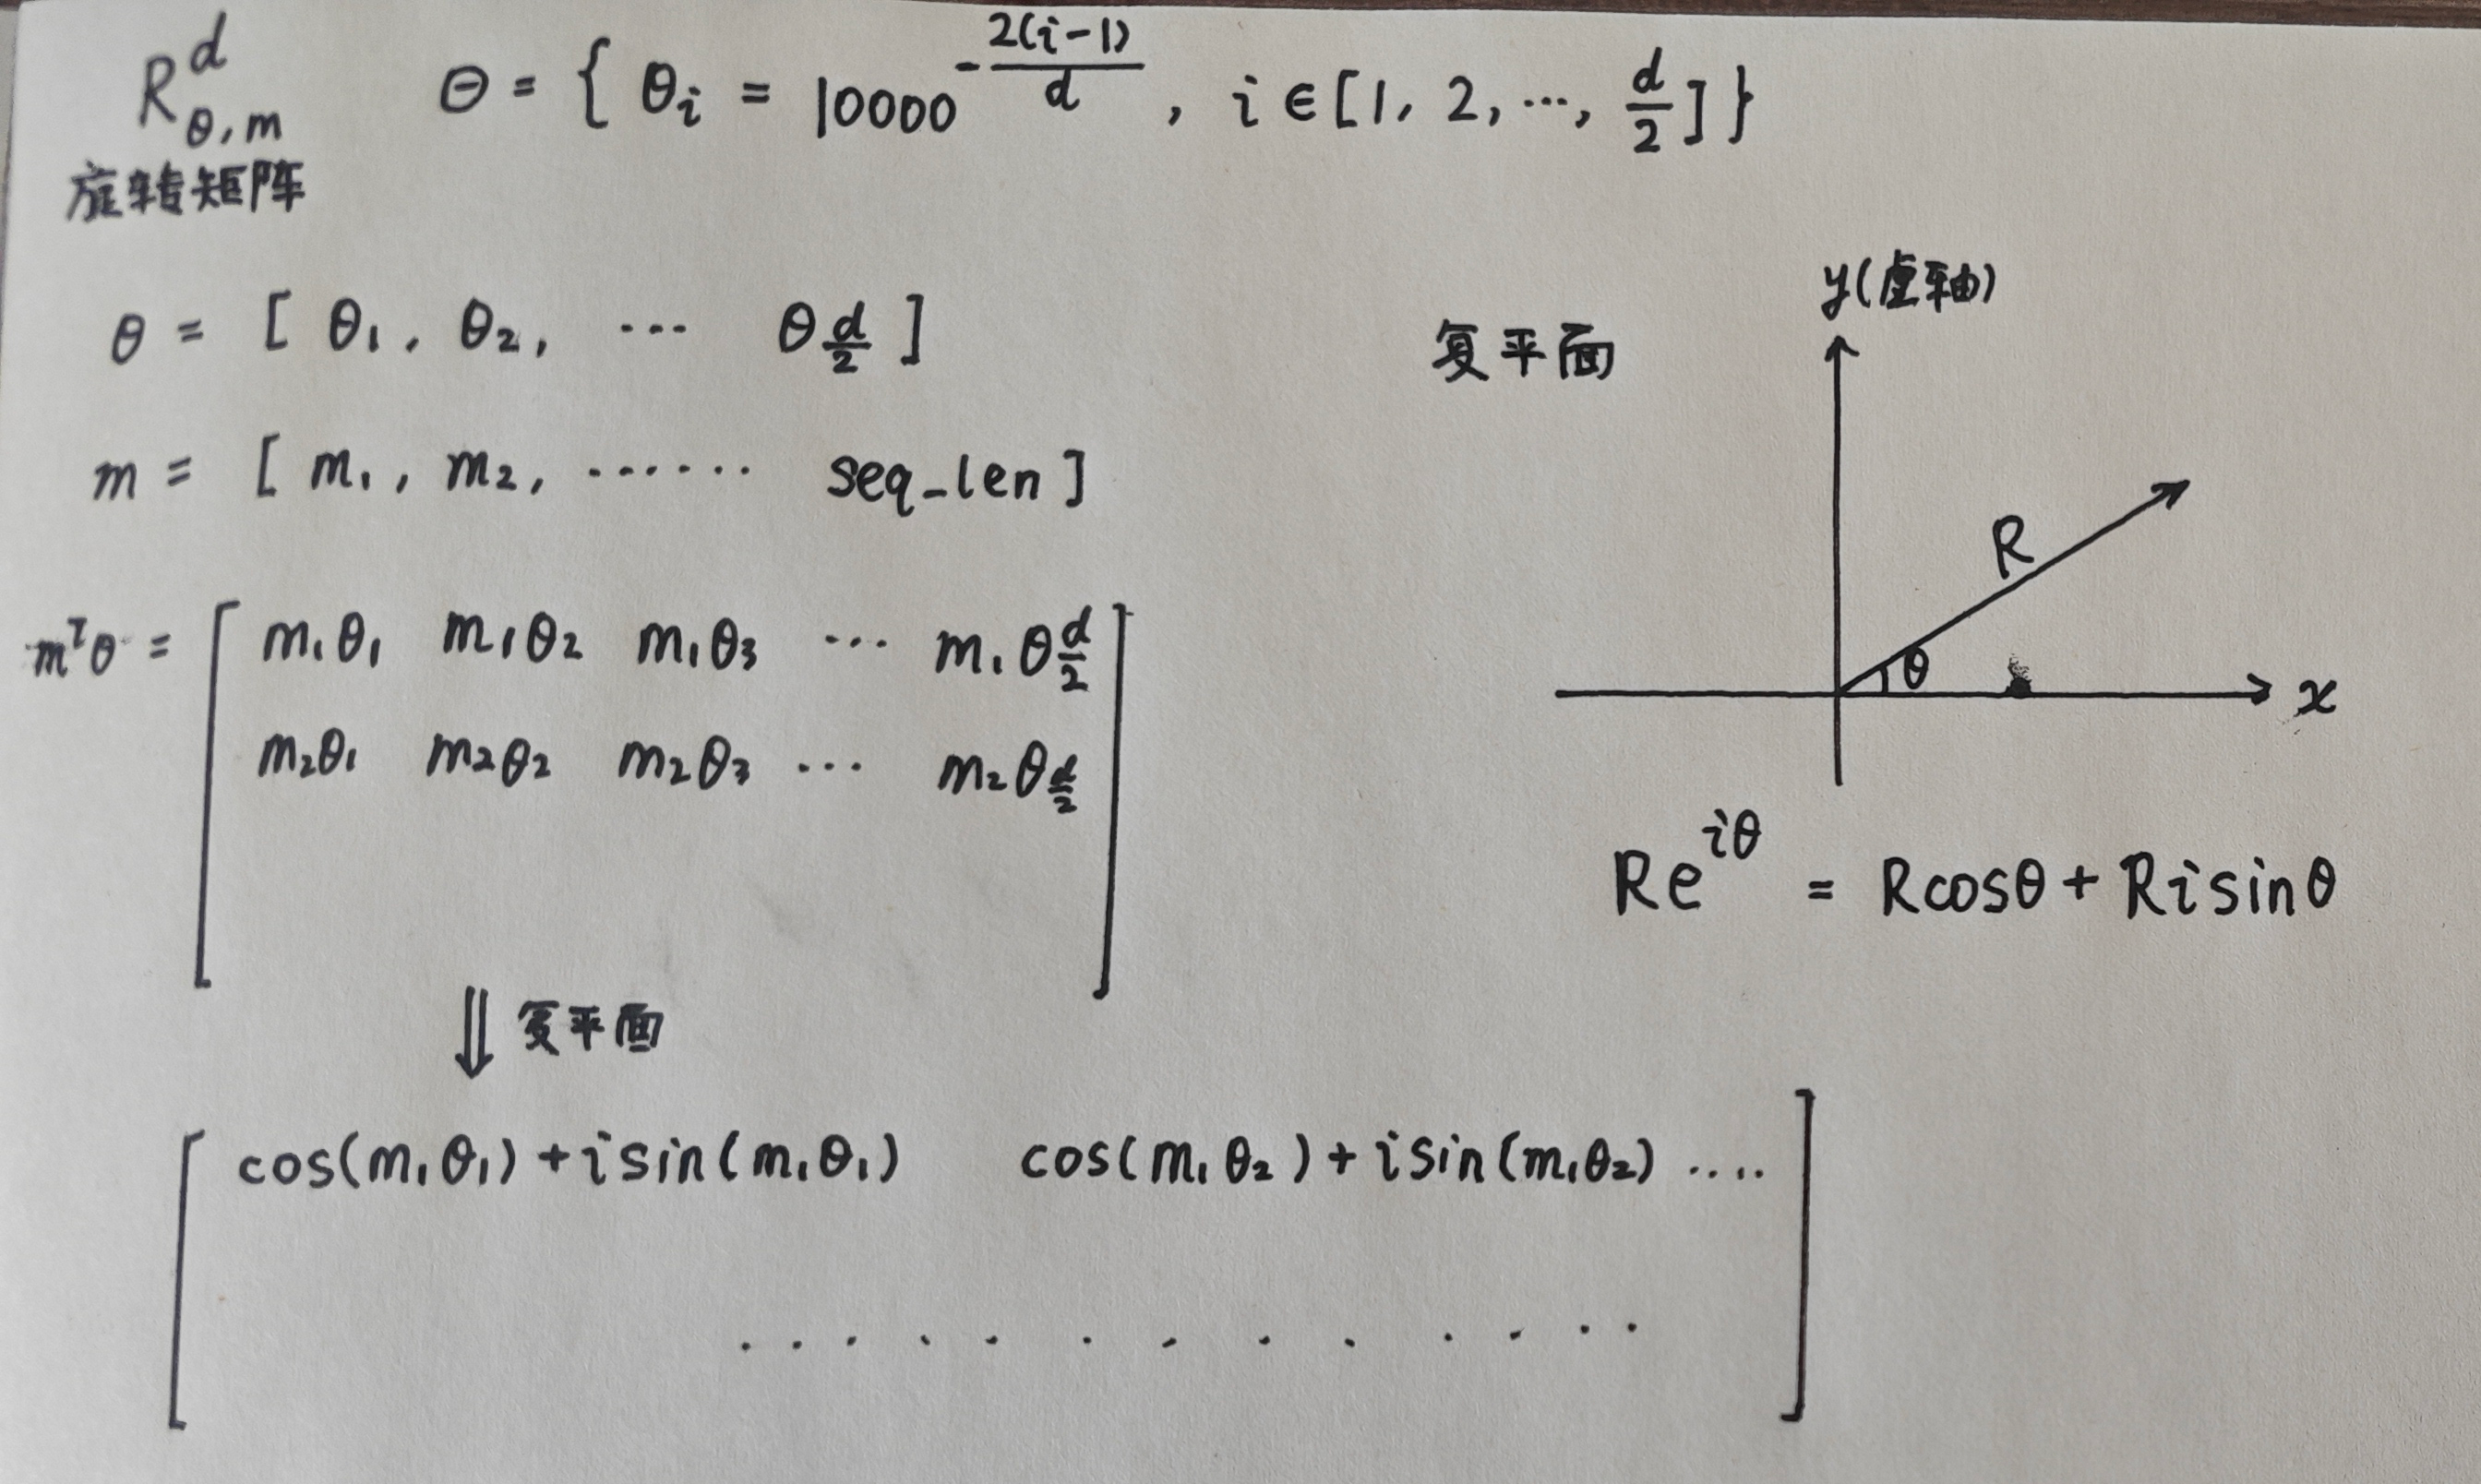 R^d_{θ,m}   Θ = { θ_i = 10000^{-\frac{2(i-1)}{d}} , i ∈ [1, 2, ⋯, \frac{d}{2}] }
旋转矩阵
θ = [ θ₁, θ₂, ⋯ θ_{\frac{d}{2}} ]
m = [ m₁, m₂, ⋯⋯ seq_len ]
m^T θ = [ m₁θ₁ m₁θ₂ m₁θ₃ ⋯ m₁θ_{\frac{d}{2}}
m₂θ₁ m₂θ₂ m₂θ₃ ⋯ m₂θ_{\frac{d}{2}} ]
⇓ 复平面
[ cos(m₁θ₁) + i sin(m₁θ₁) cos(m₁θ₂) + i sin(m₁θ₂) ....
. . . . . . . . . . . . . ]
复平面
y(虚轴)
R
θ
x
Re^{iθ} = Rcosθ + Ri sinθ